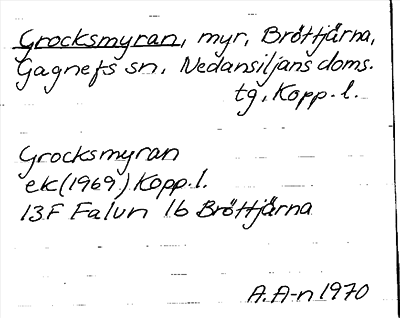 Grocksmyran, myr, Bröttjärna,
Gagnefs sn, Nedansiljans doms.
tg, Kopp. l.
Grocksmyran
ek (1969) Kopp. l.
13F Falun 1b Bröttjärna
A.A-n 1970